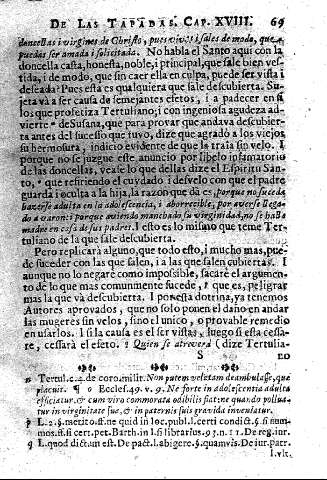 DE LAS TAPADAS. CAP. XVIII. 69
doncellas i virgines de Christo, pues vivis i sales de modo, que
puedas ser amada i solicitada. No habla el Santo aqui con la
doncella casta, honesta, noble, i principal, que sale bien ves-
tida, i de modo, que sin caer ella en culpa, puede ser vista i
deseada? Pues esta es qualquiera que sale descubierta. Su-
jeta và a ser causa de semejantes efetos, i a padecer en sì
los que profetiza Tertuliano; i con ingeniosa agudeza ad-
vierte de Susana, que para provar que andava descubierta
antes del sucesso que tuvo, dize que agradò a los viejos
su hermosura, indicio evidente de que la traìa sin velo. I
porque no se juzgue este anuncio por libelo infamatorio
de las doncellas, vease lo que dellas dize el Espiritu San-
to, que refiriendo el cuydado i desvelo con que el padre
guarda i oculta a la hija, la razon que dà es, porque no suceda
hacerse adulta en la adolescencia, i aborrecible, por averse llega-
do a varon: porque aviendo manchado su virginidad, no se halle
madre en casa de sus padres. I esto es lo mismo que teme Ter-
tuliano de la que sale descubierta.
Pero replicarà alguno, que todo esto, i mucho mas, pue-
de suceder con las que salen, i a las que salen cubiertas. I
aunque no lo negarè como impossible, sacarè el argumen-
to de lo que mas comunmente sucede, i que es, peligrar
mas la que và descubierta. I ponesta dotrina, ya tenemos
Autores aprovados, que no solo ponen el daño en andar
las mugeres sin velos, sino el unico, o provable remedio
en usarlos. I si la causa es el ser vistas, luego si esta cessa-
re, cessarà el efeto. Quien se atreverà (dize Tertulia-
S no
n Tertul. c. 4. de coro. milit. Non putem velatam deambulasse, que
placuit. ¶ o Ecclesi. 49. v. 9. Ne forte in adolescentia adulta
efficiatur, & cum viro commorata odibilis fiat: ne quando pollua-
tur in virginitate sua, & in paternis suis gravida inveniatur.
p L. 2. §. merito. ff. ne quid in loc. publ. l. certi condict. §. si num-
mos. ff. si cert. pet. Barth. in l. si librarius. 93. n. 11. De reg. iur.
q L. quod dictum est. De pact. l. abigere. §. quamvis. De iur. patr.
l. vlt.